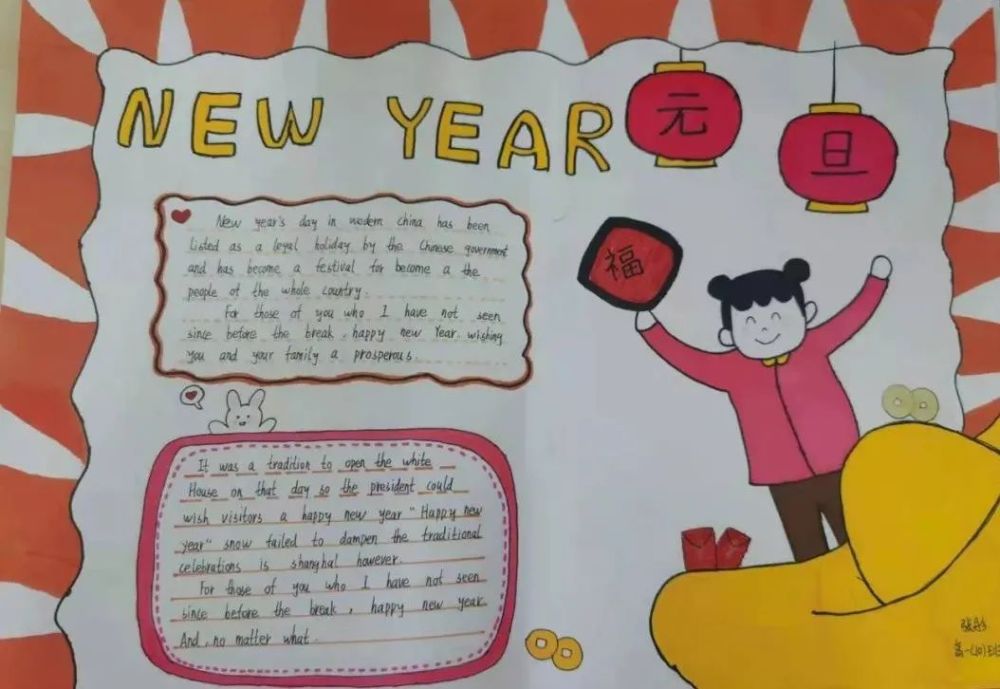 NEW YEAR
元旦
福
New year's day in modern china has been
listed as a legal holiday by the Chinese government
and has become a festival for become a the
people of the whole country.
For those of you who I have not seen
since before the break, happy new Year. wishing
you and your family a prosperous.
It was a tradition to open the white
House on that day so the president could
wish visitors a happy new year "Happy new
year" snow failed to dampen the traditional
celebrations is shanghai however.
For those of you who I have not seen
since before the break, happy new year.
And, no matter what.
高一(10)班